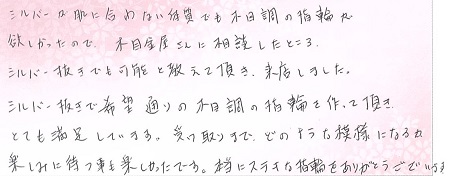 シルバーが肌に合わない体質でも木目調の指輪が
欲しかったので、木目金屋さんに相談したところ、
シルバー抜きでも可能と教えて頂き、来店しました。
シルバー抜きで希望通りの木目調の指輪を作って頂き、
とても満足しています。受け取りまで、どのような模様になるか
楽しみに待つ事も楽しかったです。本当にステキな指輪をありがとうございます